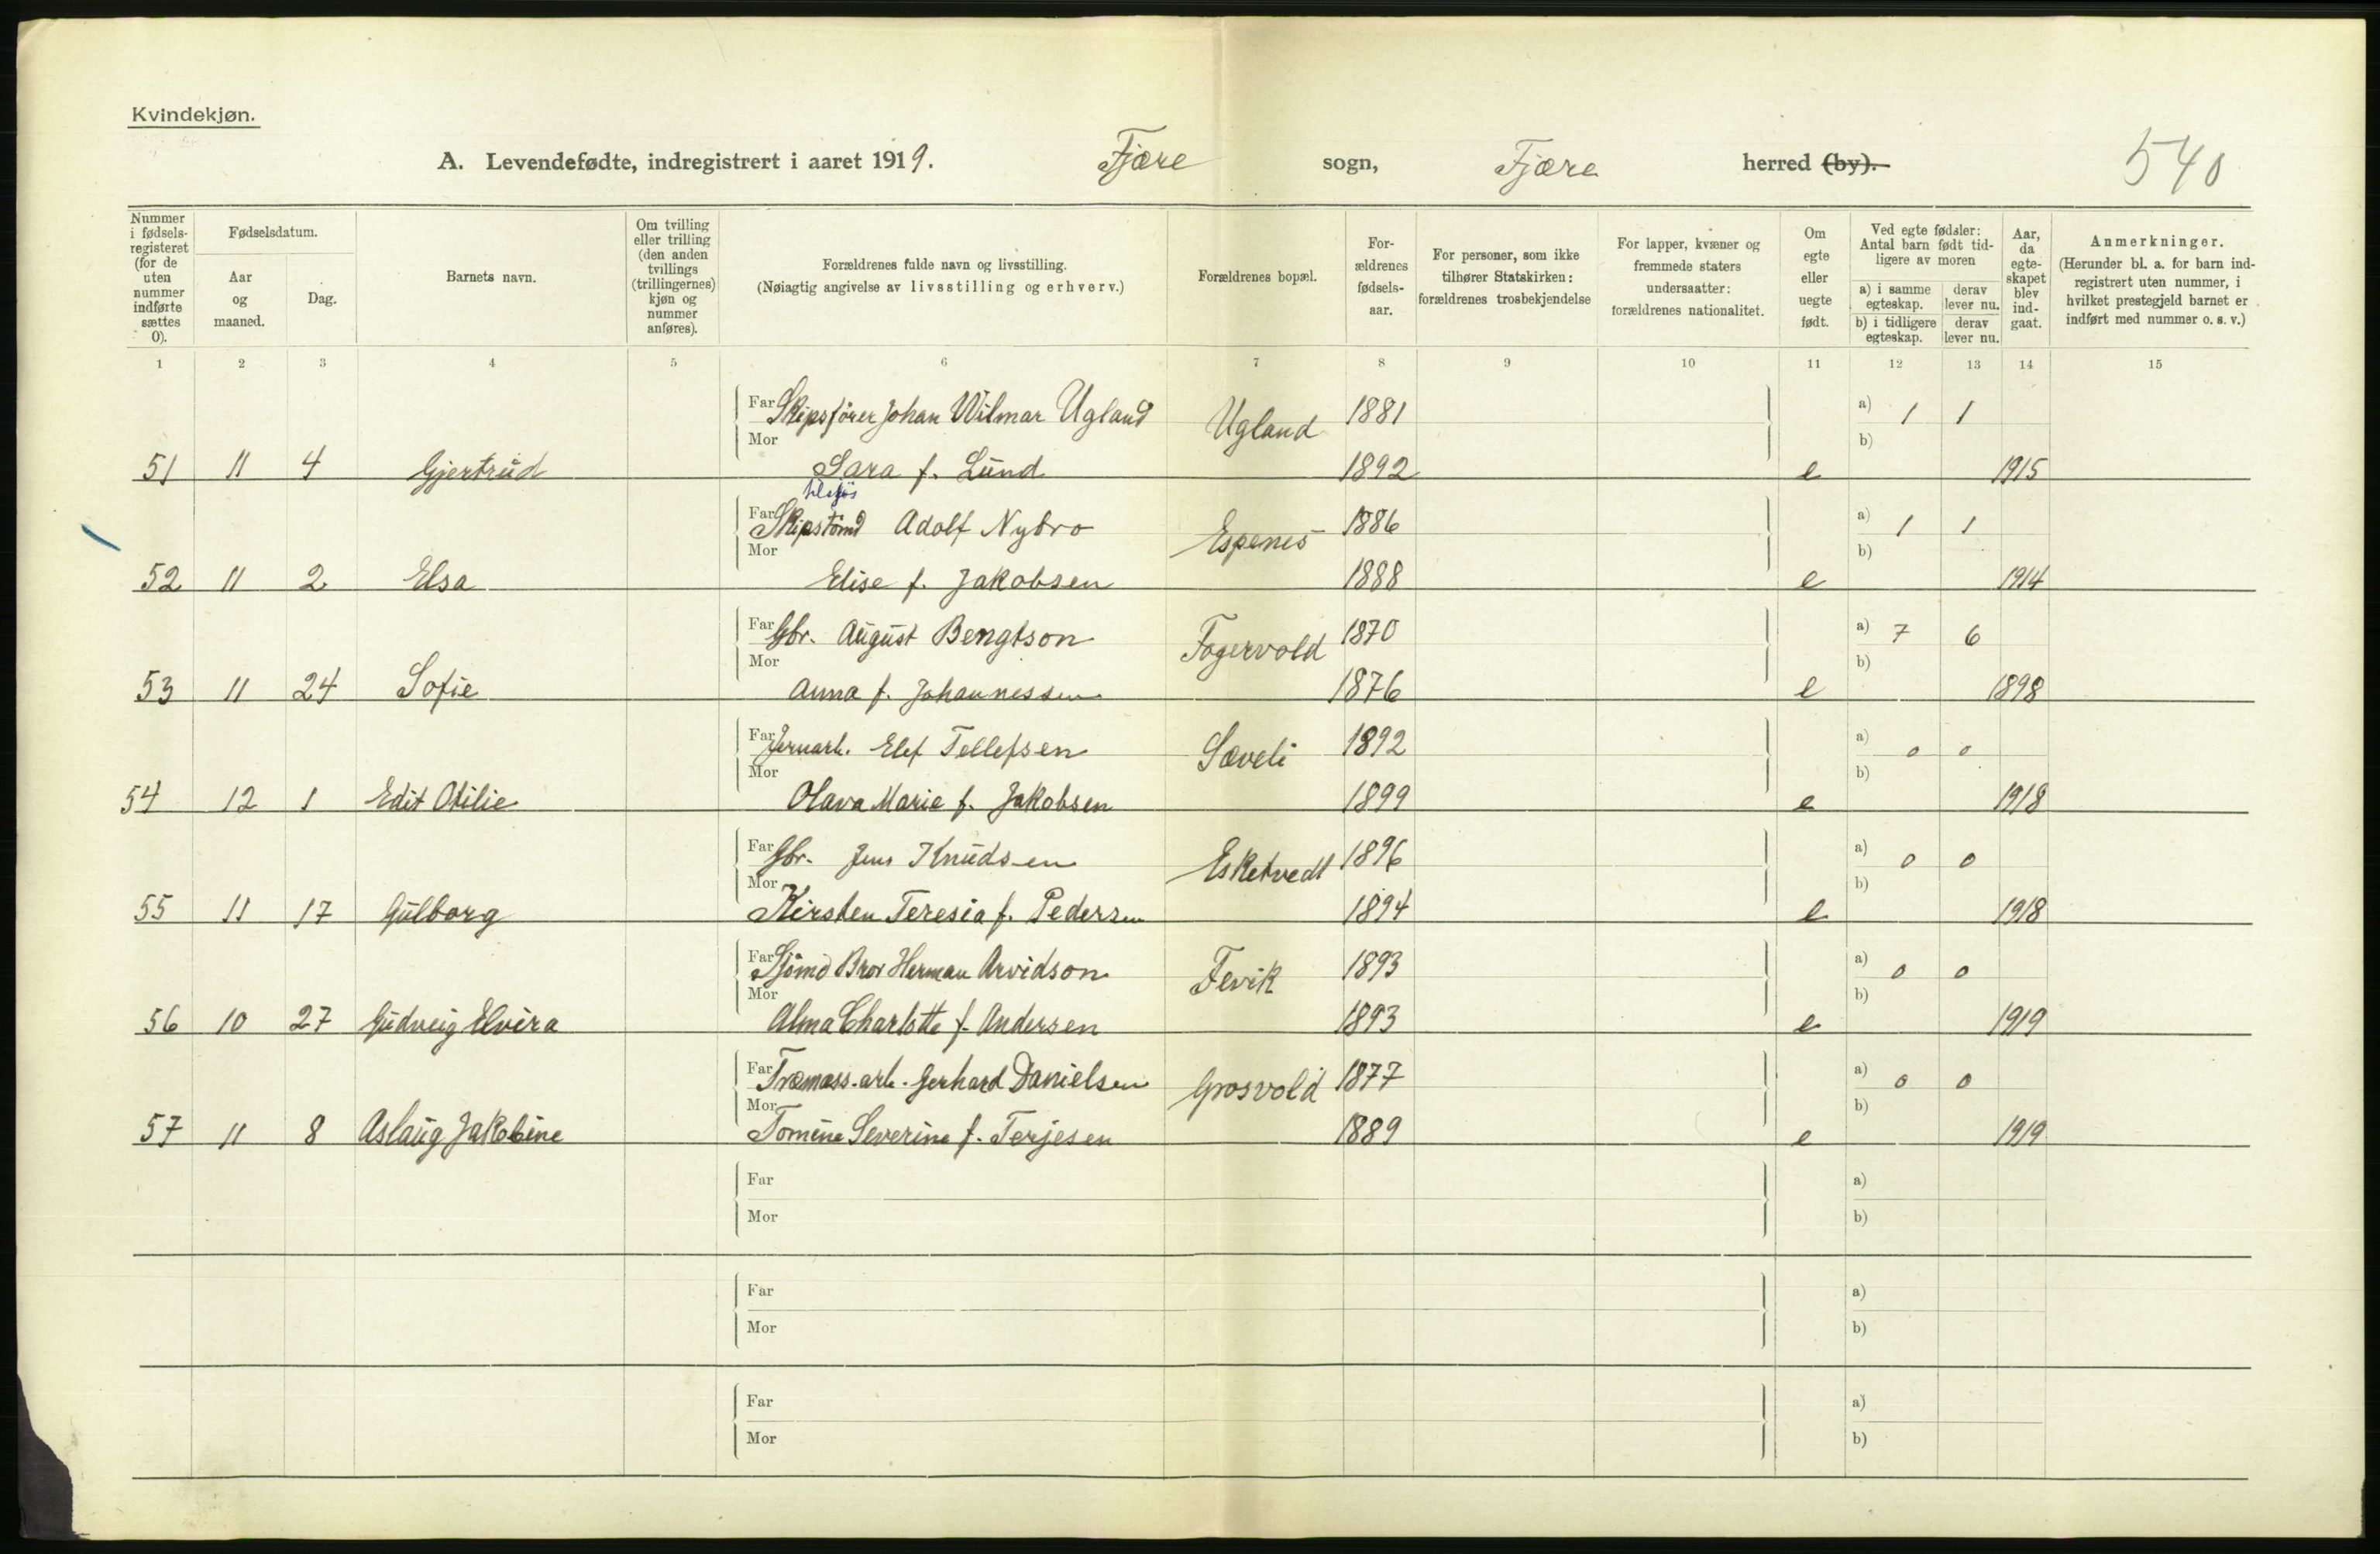 Kvindekjøn.
A. Levendefødte, indregistrert i aaret 1919. Fjære sogn, Fjære herred (by). 540
Nummer i fødsels-registeret (for de uten nummer indførte sættes 0).
Fødselsdatum.
Aar og maaned.
Dag.
Barnets navn.
Om tvilling eller trilling (den anden tvillings (trillingernes) kjøn og nummer anføres).
Forældrenes fulde navn og livsstilling.
(Nøiagtig angivelse av livsstilling og erhverv.)
Forældrenes bopæl.
For-ældrenes fødsels-aar.
For personer, som ikke tilhører Statskirken: forældrenes trosbekjendelse
For lapper, kvæner og fremmede staters undersaatter: forældrenes nationalitet.
Om egte eller uegte født.
Ved egte fødsler: Antal barn født tid-ligere av moren
a) i samme egteskap. derav lever nu.
b) i tidligere egteskap. derav lever nu.
Aar, da egte-skapet blev ind-gaat.
Anmerkninger.
(Herunder bl. a. for barn ind-registrert uten nummer, i hvilket prestegjeld barnet er indført med nummer o. s. v.)
1 2 3 4 5 6 7 8 9 10 11 12 13 14 15
Far Skipsfører Johan Wilmar Ugland Ugland 1881 a) 1 1
Mor b)
51 11 4 Gjertrud Sara f. Lund 1892 e 1915
tilsjøs
Far Skipstømd Adolf Nybro Espenes 1886 a) 1 1
Mor b)
52 11 2 Elsa Elise f. Jakobsen 1888 e 1914
Far Gbr. August Bengtson Fagervold 1870 a) 7 6
Mor b)
53 11 24 Sofie Anna f. Johannessen 1876 e 1898
Far Jernarb. Elef Tellefsen Sæveli 1892 a) 0 0
Mor b)
54 12 1 Edit Otilie Olava Marie f. Jakobsen 1899 e 1918
Far Gbr. Jens Knudsen Esketvedt 1896 a) 0 0
Mor b)
55 11 17 Gulborg Kirsten Teresia f. Pedersen 1894 e 1918
Far Sjømd Bror Herman Arvidson Fevik 1893 a) 0 0
Mor b)
56 10 27 Gudveig Elvira Alma Charlotte f. Andersen 1893 e 1919
Far Træmass. arb. Gerhard Danielsen Grosvold 1877 a) 0 0
Mor b)
57 11 8 Aslaug Jakobine Tomine Severine f. Terjesen 1889 e 1919
Far a)
Mor b)
Far a)
Mor b)
Far a)
Mor b)